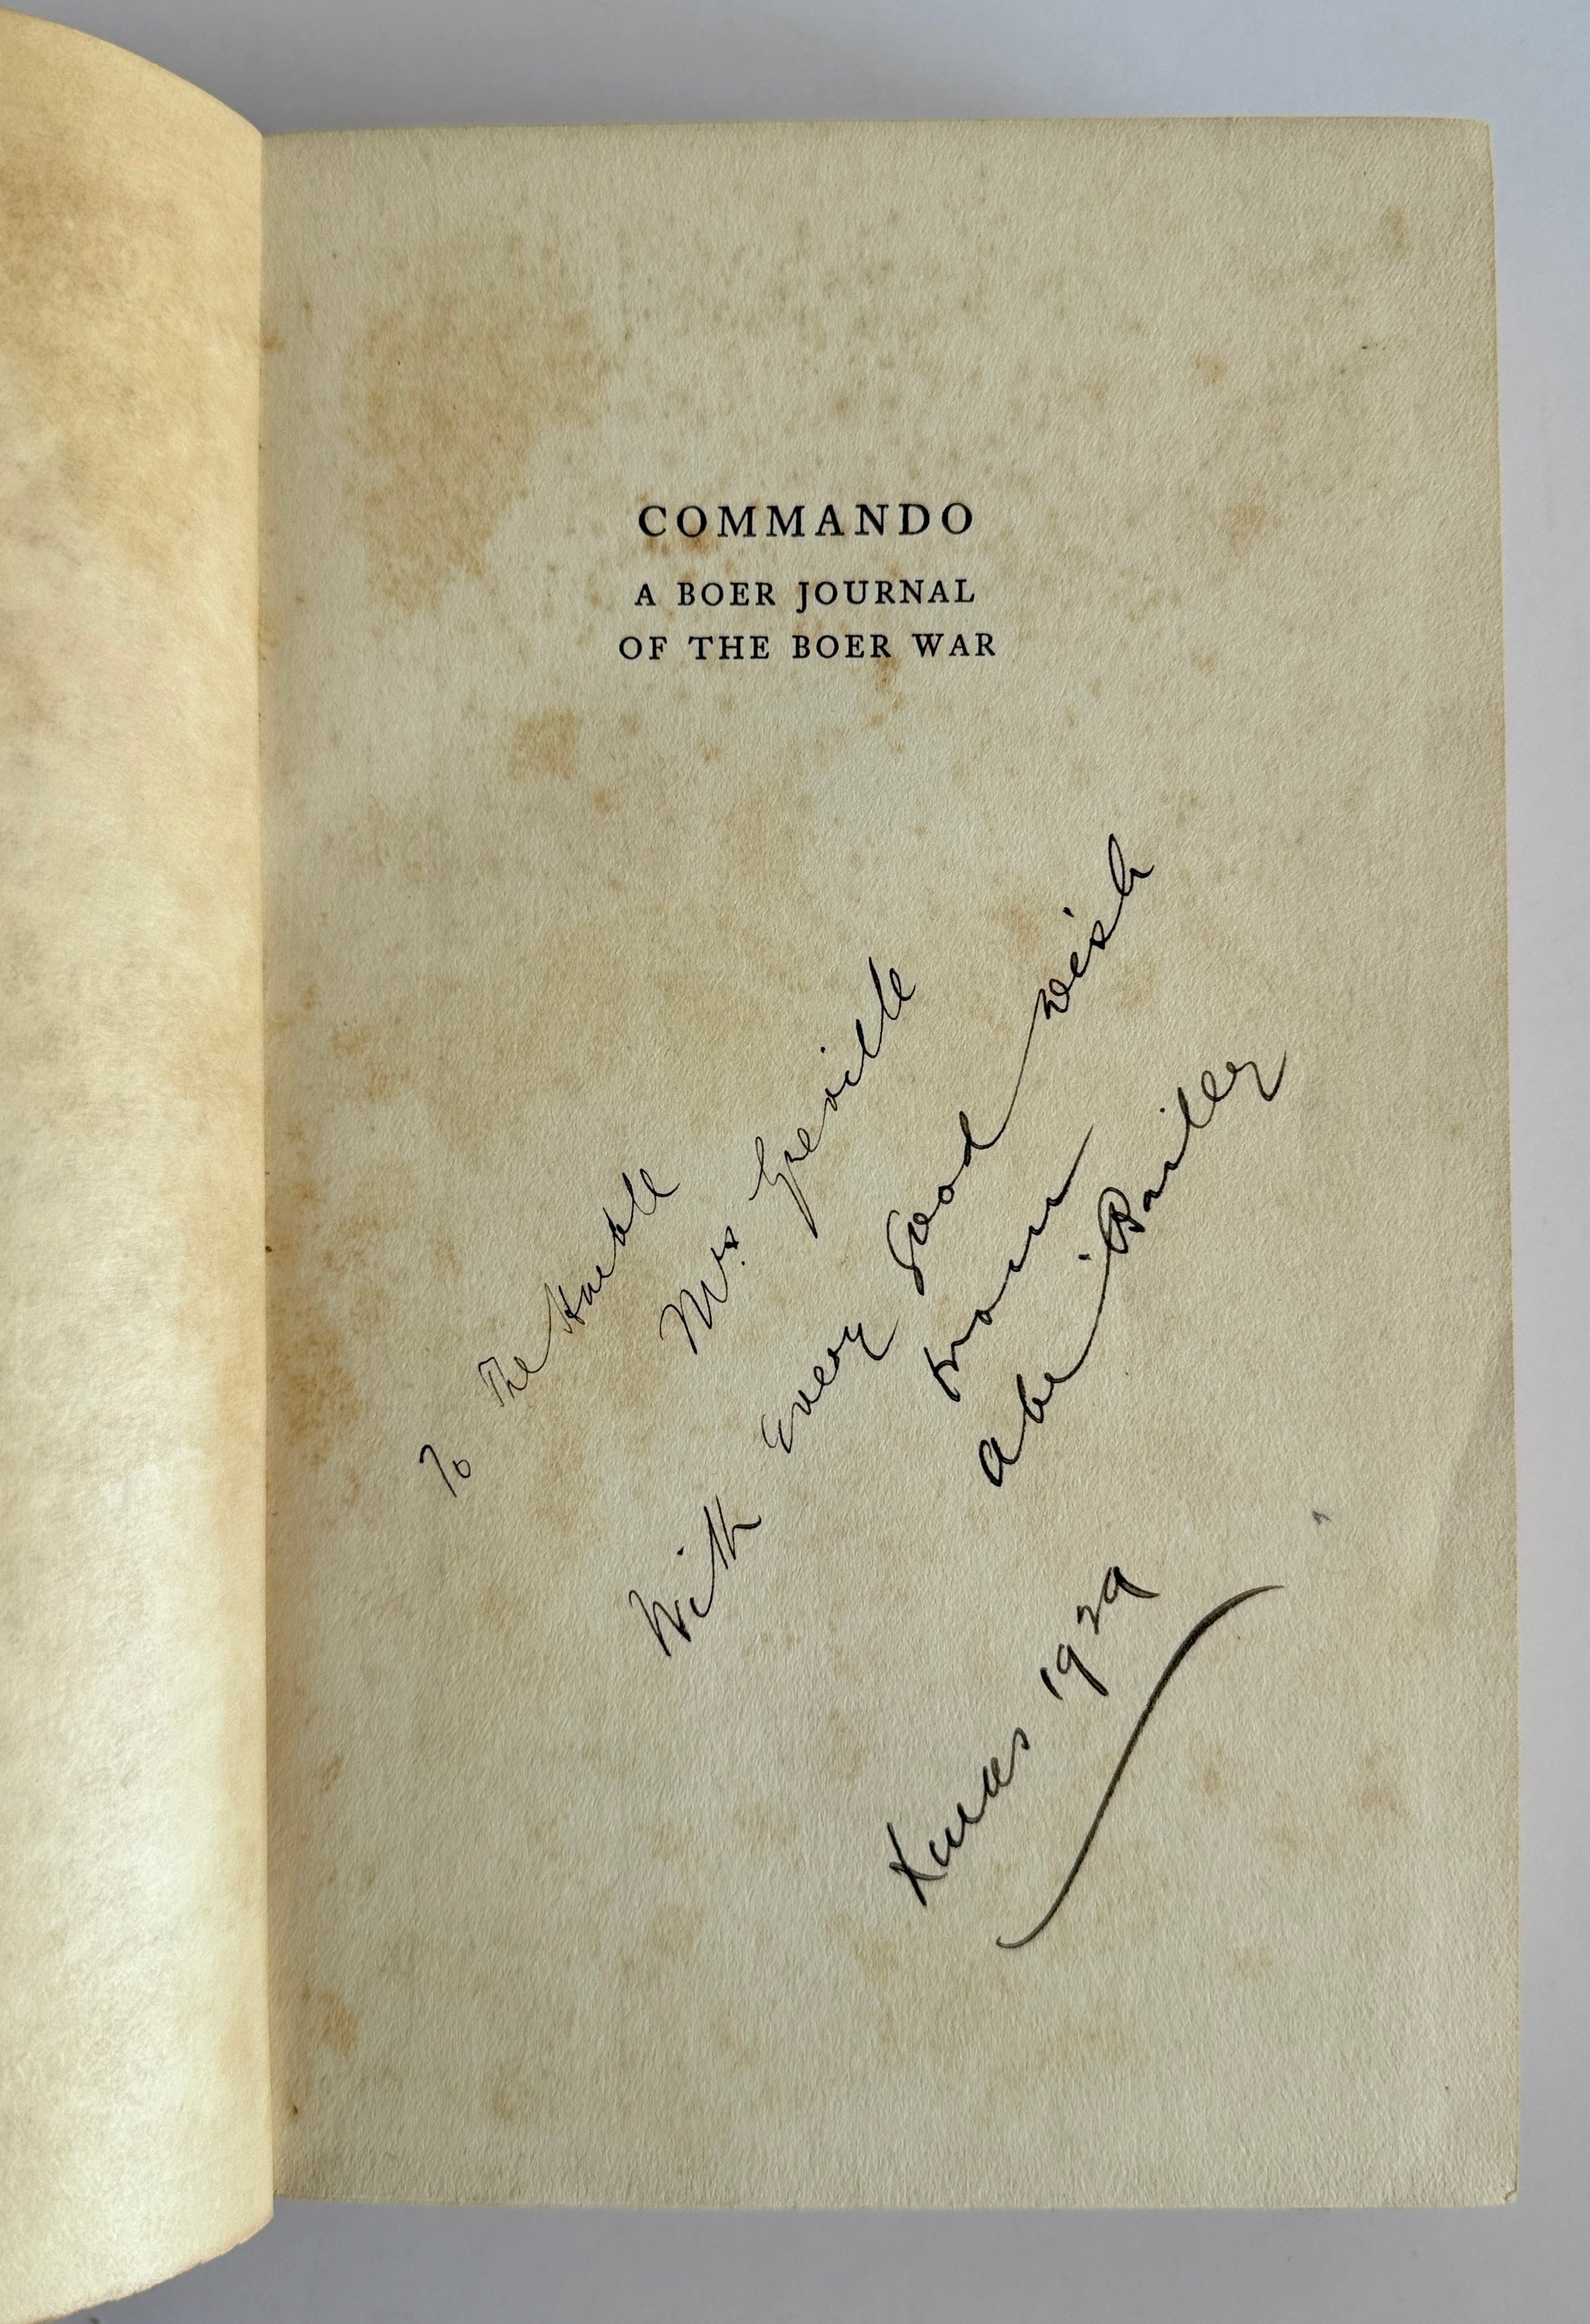 COMMANDO
A BOER JOURNAL
OF THE BOER WAR
To The Honble
Mrs Greville
With Every Good wish
from
Abe Bailey
Xmas 1929